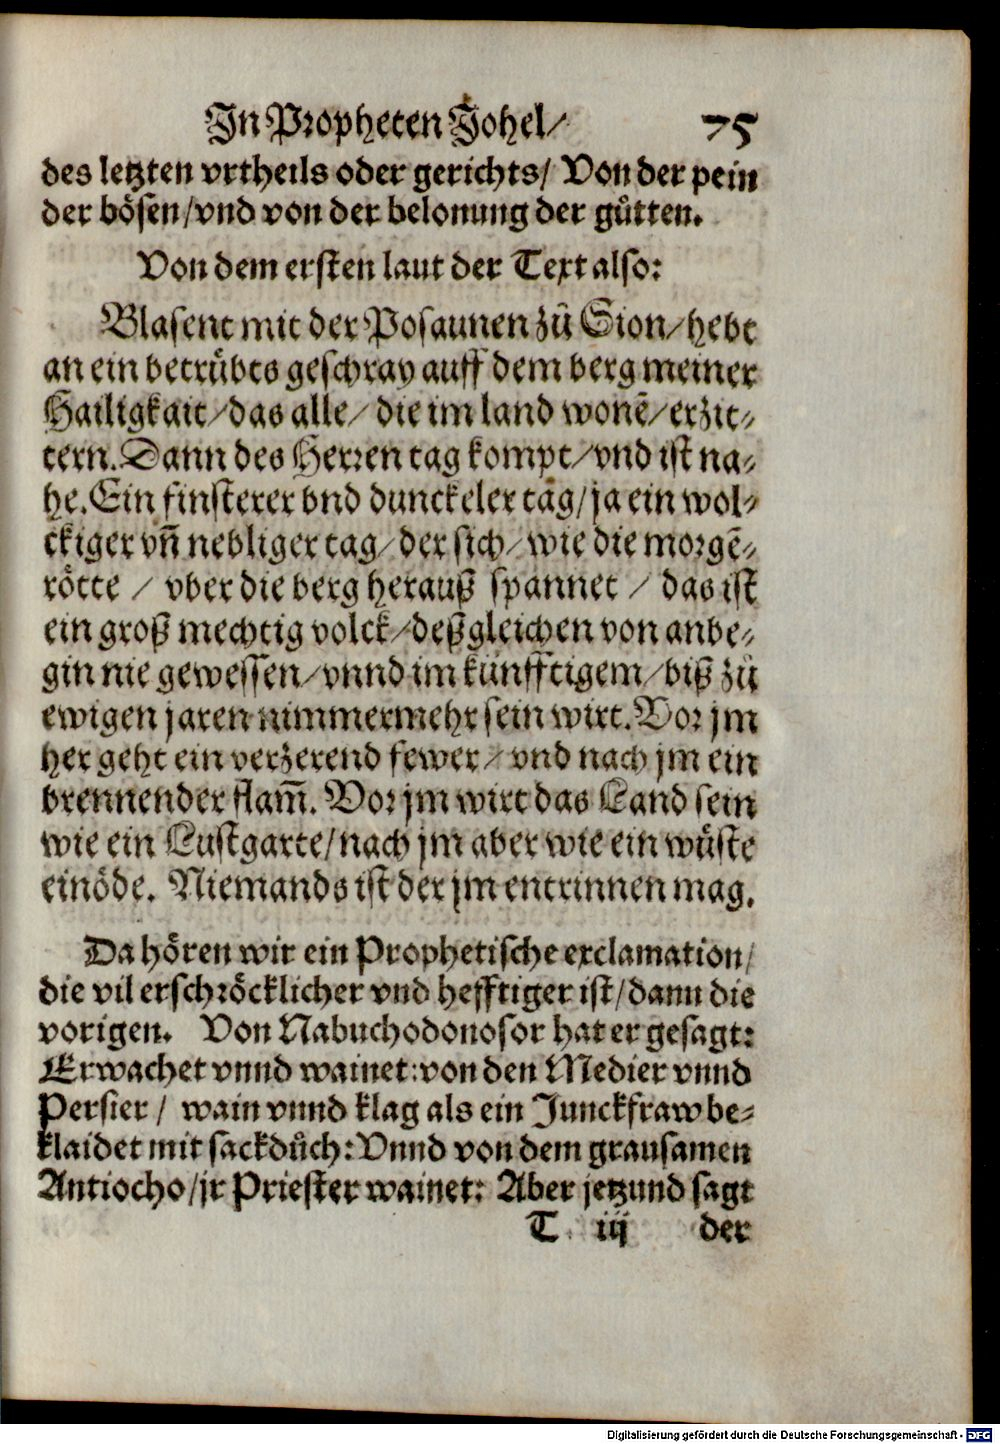 In Propheten Johel/ 75
des letzten vrtheils oder gerichts/ Von der pein
der bösen/vnd von der belonung der guͤtten.
Von dem ersten laut der Text also:
Blasent mit der Posaunen zuͤ Sion/hebt
an ein betruͤbts geschray auff dem berg meiner
Hailigkait/das alle/ die im land wonē/erzit⸗
tern. Dann des Herren tag kompt/vnd ist na⸗
he. Ein finsterer vnd dunckeler tag/ja ein wol⸗
ckiger vn̄ nebliger tag/der sich/wie die morgē⸗
rötte / vber die berg herauß spannet / das ist
ein groß mechtig volck/deßgleichen von anbe⸗
gin nie gewessen/vnnd im künfftigem/biß zuͤ
ewigen jaren nimmermehr sein wirt. Vor jm
her geht ein verzerend fewer/vnd nach jm ein
brennender flam̄. Vor jm wirt das Land sein
wie ein Lustgarte/nach jm aber wie ein wuͤste
einöde. Niemands ist der jm entrinnen mag.
Da hören wir ein Prophetische exclamation/
die vil erschröcklicher vnd hefftiger ist/dann die
vorigen. Von Nabuchodonosor hat er gesagt:
Erwachet vnnd wainet: von den Medier vnnd
Persier/ wain vnnd klag als ein Junckfraw be⸗
klaidet mit sackduͤch: Vnnd von dem grausamen
Antiocho/jr Priester wainet: Aber jetzund sagt
T iij der
Digitalisierung gefördert durch die Deutsche Forschungsgemeinschaft - DFG